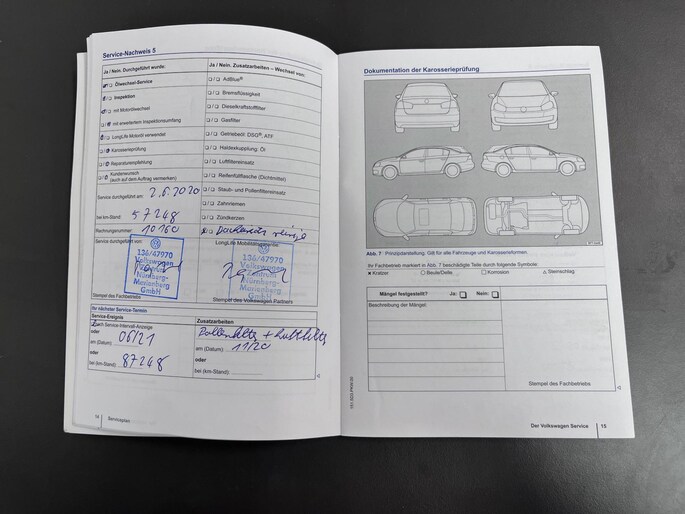 Service-Nachweis 5
Ja / Nein. Durchgeführt wurde:
Ölwechsel-Service
Inspektion
mit Motorölwechsel
mit erweitertem Inspektionsumfang
LongLife Motoröl verwendet
Karosserieprüfung
Reparaturempfehlung
Kundenwunsch
(auch auf dem Auftrag vermerken)
Service durchgeführt am: 2.6.2020
bei km-Stand: 57248
Rechnungsnummer: 10160
Service durchgeführt von:
136/47970
Volkswagen
Nürnberg-
Marienberg
GmbH
Stempel des Fachbetriebs
Ja / Nein. Zusatzarbeiten – Wechsel von:
AdBlue®
Bremsflüssigkeit
Dieselkraftstofffilter
Gasfilter
Getriebeöl: DSG®, ATF
Haldexkupplung: Öl
Luftfiltereinsatz
Reifenfüllflasche (Dichtmittel)
Staub- und Pollenfiltereinsatz
Zahnriemen
Zündkerzen
LongLife Mobilitätsgarantie:
136/47970
Volkswagen
Nürnberg-
Marienberg
GmbH
Stempel des Volkswagen Partners
Ihr nächster Service-Termin
Service-Ereignis
Nach Service-Intervall-Anzeige
oder
am (Datum): 06/21
oder
bei (km-Stand): 87248
Zusatzarbeiten:
Pollenfilter + Luftfilter
am (Datum): 11/20
oder
bei (km-Stand):
14
Serviceplan
Dokumentation der Karosserieprüfung
Abb. 7 Prinzipdarstellung. Gilt für alle Fahrzeuge und Karosserieformen.
Ihr Fachbetrieb markiert in Abb. 7 beschädigte Teile durch folgende Symbole:
Kratzer Beule/Delle Korrosion Steinschlag
Mängel festgestellt? Ja: Nein:
Beschreibung der Mängel:
Stempel des Fachbetriebs
Der Volkswagen Service 15